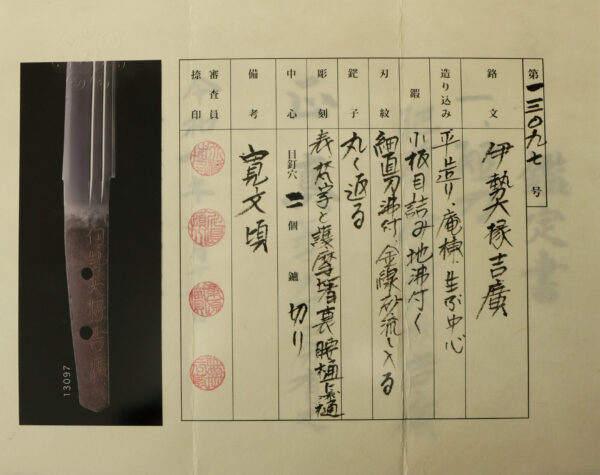 第一三〇九七号
銘文 伊勢大塚吉廣
造り込み 平造り、庵棟、生ぶ中心
鍛 小板目詰み地沸付く
刃紋 細直刃沸付、金線砂流し入る
鋩子 丸く返る
彫刻 表梵字と護摩箸裏腰樋添樋
中心 目釘穴 二 個 鑢 切り
備考 寛文頃
審査員
捺印
13097